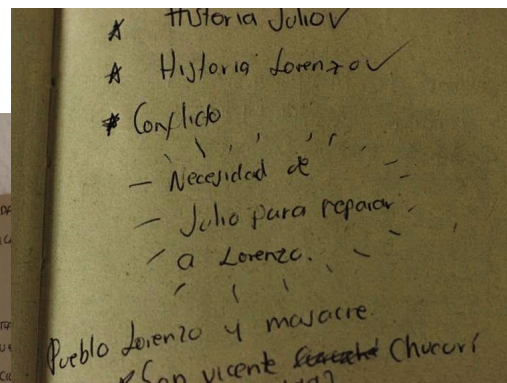 * Historia Julio ✓
* Historia Lorenzo ✓
* Conflicto
– Necesidad de
– Julio para reparar
a Lorenzo.
Pueblo Lorenzo y masacre.
* San vicente Chucurí